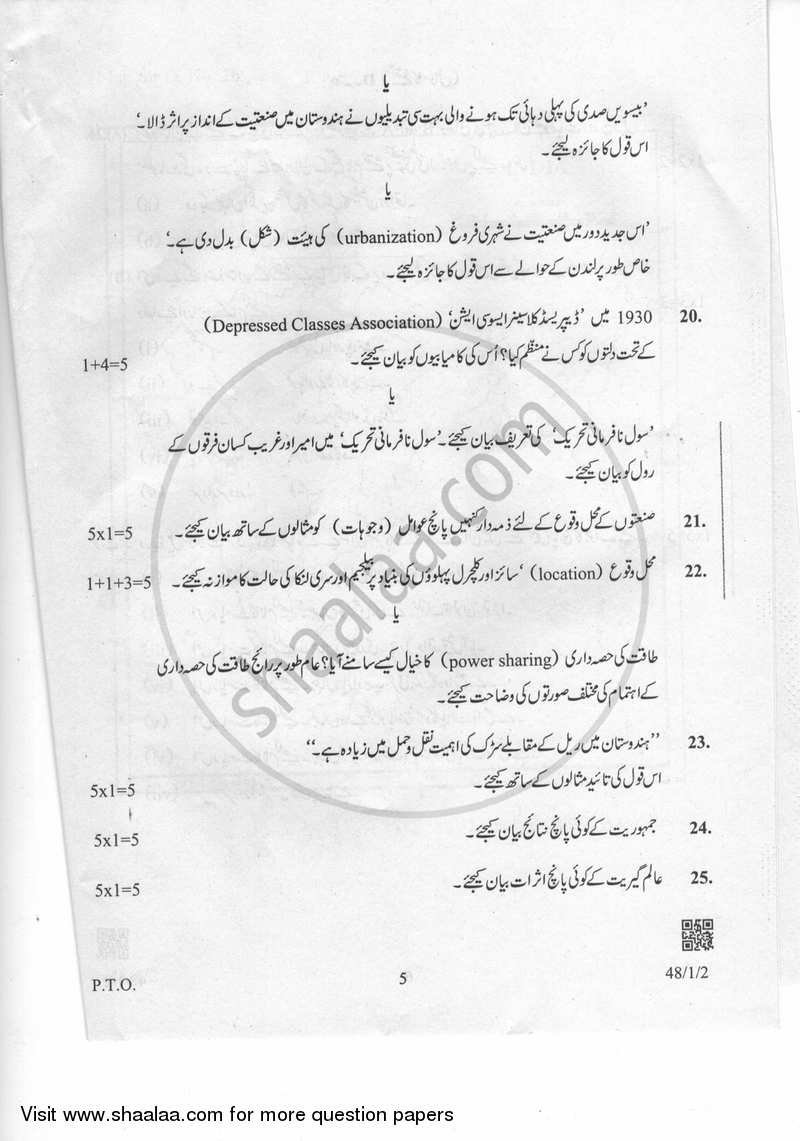 یا
'بیسویں صدی کی پہلی دہائی تک ہونے والی بہت سی تبدیلیوں نے ہندوستان میں صنعتیت کے انداز پر اثر ڈالا۔'
اس قول کا جائزہ لیجئے۔
یا
'اس جدید دور میں صنعتیت نے شہری فروغ (urbanization) کی ہیئت (شکل) بدل دی ہے۔'
خاص طور پر لندن کے حوالے سے اس قول کا جائزہ لیجئے۔
20. 1930 میں 'ڈیپریسڈ کلاسیز ایسوسی ایشن' (Depressed Classes Association)
کے تحت دلتوں کو کس نے منظم کیا؟ اُس کی کامیابیوں کو بیان کیجئے۔ 1+4=5
یا
'سول نافرمانی تحریک' کی تعریف بیان کیجئے۔ 'سول نافرمانی تحریک' میں امیر اور غریب کسان فرقوں کے
رول کو بیان کیجئے۔
21. صنعتوں کے محل وقوع کے لئے ذمہ دار کنہیں پانچ عوامل (وجوہات) کو مثالوں کے ساتھ بیان کیجئے۔ 5x1=5
22. محل وقوع (location) ' سائز اور کلچرل پہلوؤں کی بنیاد پر بیلجیم اور سری لنکا کی حالت کا موازنہ کیجئے۔ 1+1+3=5
یا
طاقت کی حصہ داری (power sharing) کا خیال کیسے سامنے آیا؟ عام طور پر رائج طاقت کی حصہ داری
کے اہتمام کی مختلف صورتوں کی وضاحت کیجئے۔
23. ''ہندوستان میں ریل کے مقابلے سڑک کی اہمیت نقل و حمل میں زیادہ ہے۔''
اس قول کی تائید مثالوں کے ساتھ کیجئے۔ 5x1=5
24. جمہوریت کے کوئی پانچ نتائج بیان کیجئے۔ 5x1=5
25. عالم گیریت کے کوئی پانچ اثرات بیان کیجئے۔ 5x1=5
P.T.O. 5 48/1/2
shaalaa.com
Visit www.shaalaa.com for more question papers